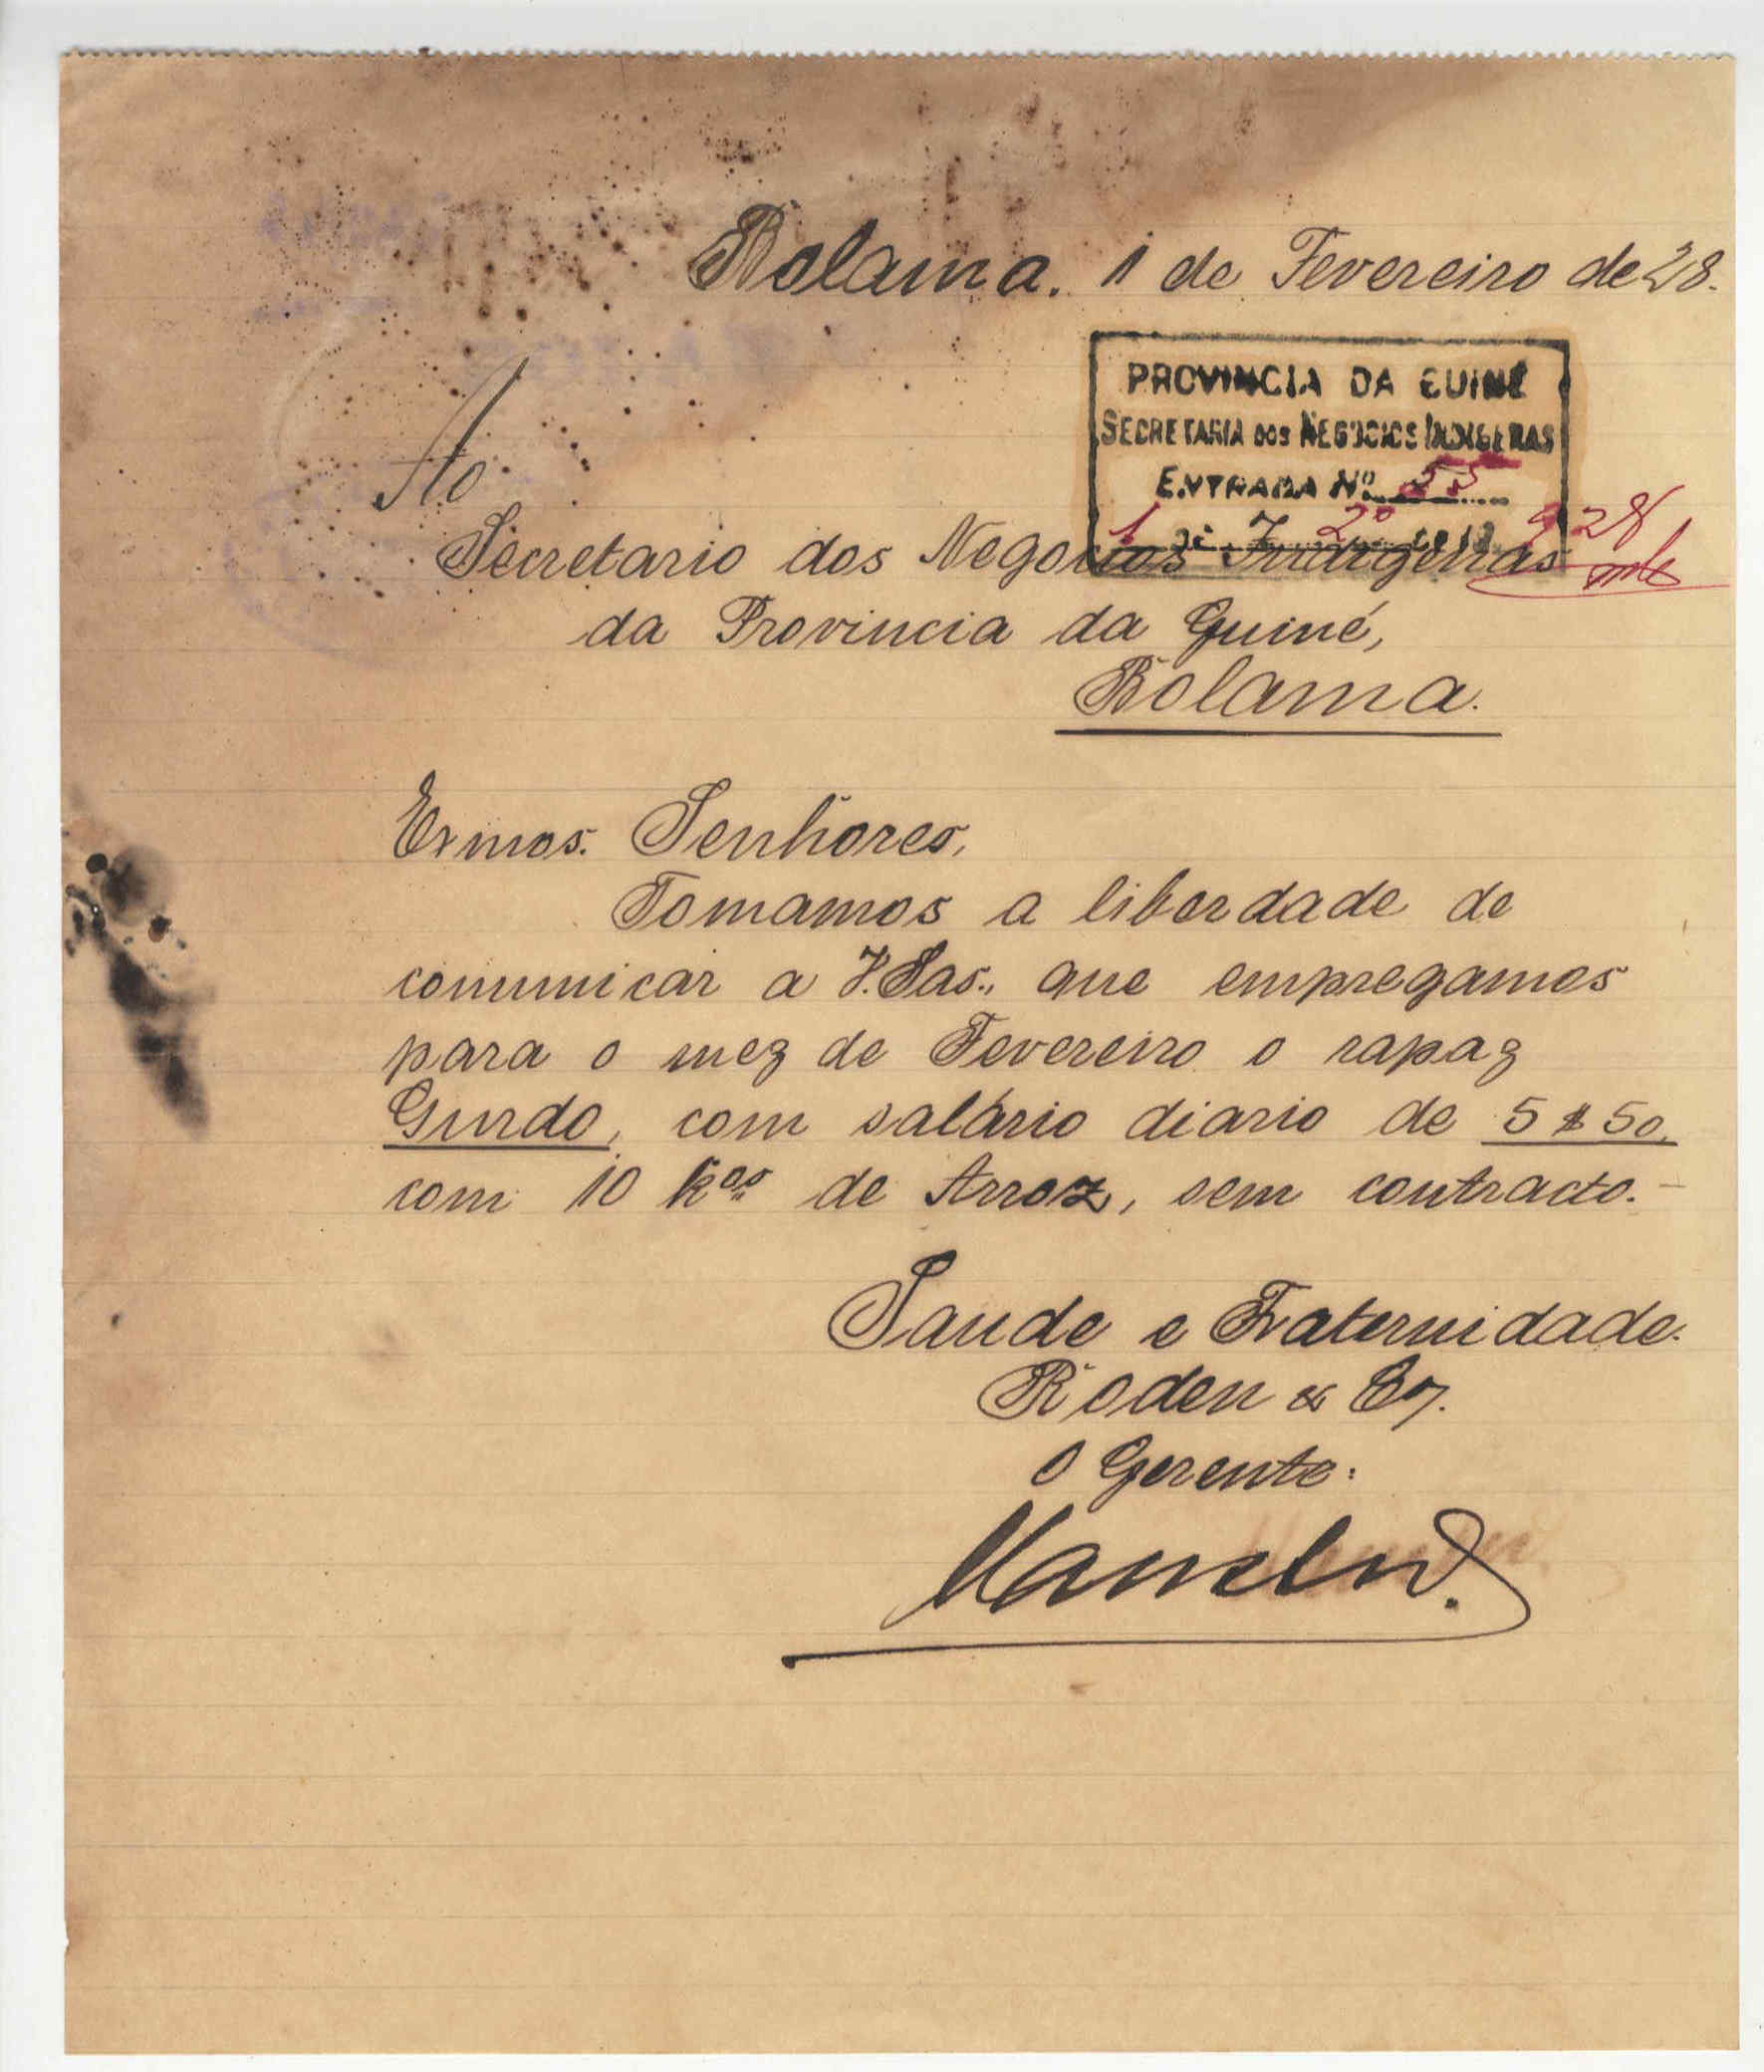 Bolama. 1 de Fevereiro de 28.
PROVINCIA DA GUINÉ
SECRETARIA DOS NEGOCIOS INDIGENAS
ENTRADA Nº 55
Ao
Secretario dos Negocios Indigenas
da Provincia da Guiné,
Bolama.
Exmos. Senhores,
Tomamos a liberdade de
comunicar a V.Sas., que empregamos
para o mez de Fevereiro o rapaz
Gurdo, com salário diario de 5$50,
com 10 kos de Arroz, sem contracto.-
Saude e Fraternidade.
Roden & Co.
O Gerente: